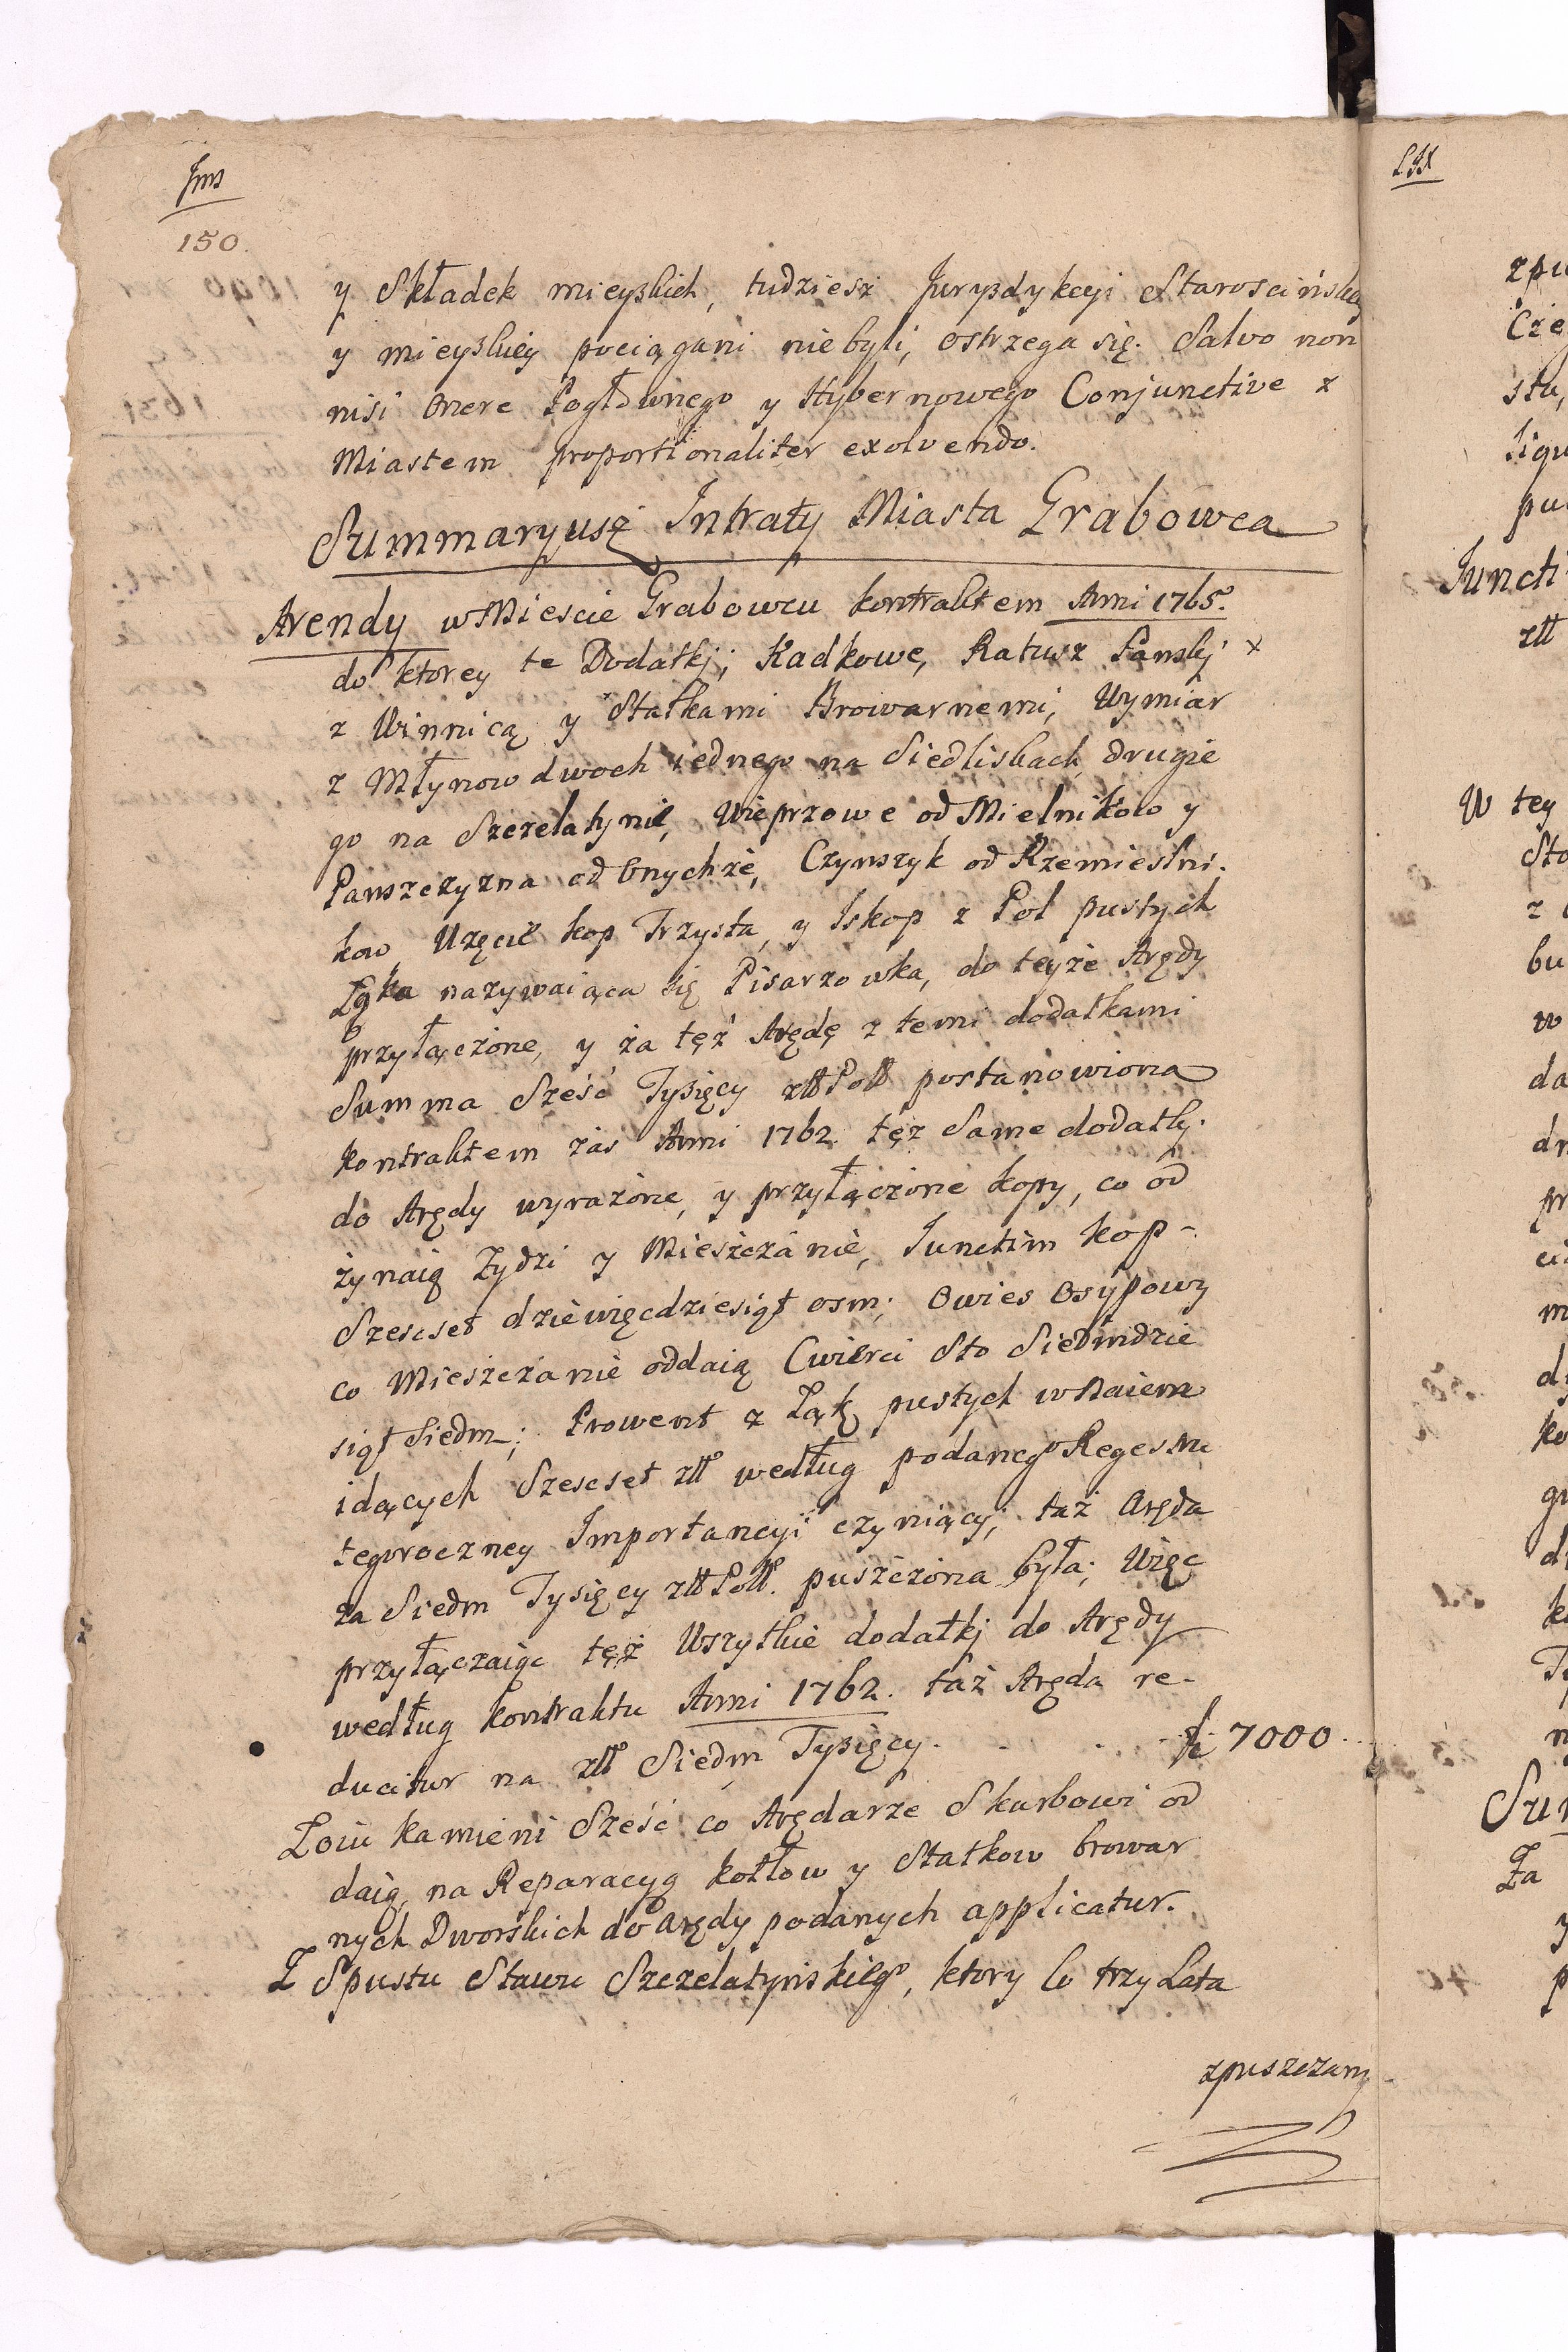 Jms
150.
y Składek mieyskich, tudziesz Juryzdykcyi Starościńskiey
y mieyskiey pociągani niebyli, ostrzega się. Salvo non
nisi onere Pogłownego y Hybernowego Conjunctive z
Miastem proportionaliter exolvendo.
Summaryusz Intraty Miasta Grabowca
Arendy w Mieście Grabowcu kontraktem Anni 1765º.
do ktorey te Dodatkj; Kadkowe, Ratusz Panskj x
z Winnicą y Statkami Browarnemi, Wymiar
z Młynow dwoch iednego na Siedliskach, drugie
go na Szczelatynie, Wieprzowe od Mielnikow y
Panszczyzna od onychże, Czynszyk od Rzemieslni.
kow, Użęcie kop Trzysta, y Iskop z Pol pustych
Łąka nazywaiąca się Pisarzowka, do teyże Arędy
przyłączone, y za tęż Arędę z temi dodatkami
Summa Sześć Tysięcy złł Poll postanowiona
kontraktem zas Anni 1762. tęż Same dodatky.
do Arędy wyrażone, y przyłączone kopy, co od
żynaią Zydzi y Mieszczanie, Iunctim kop -
Szescset dziewięcdziesiąt osm; Owies Osypowy
co Mieszczanie oddaią Cwierci Sto Siedmdzie
siąt Siedm; Prowent z Łąk pustych w Naiem
idących Szescset złł według podanego Regestru
tegoroczney Importancyi czyniący; taż Aręda
za Siedm Tysięcy złł Poll. puszczona była; Więc
przyłączaiąc tęż Wszytkie dodatkj do Arędy
według kontraktu Anni 1762. taż Aręda re-
ducitur na złł Siedm Tysięcy. . . . fl 7000 ..
Łoiu kamieni Sześć co Arędarze Skarbowi od
daią, na Reparacyą kotłow y Statkow browar
nych Dworskich do Arędy podanych applicatur.
Z Spustu Stawu Szczelatyńskiego, ktory co trzy Lata
zpuszczany
LJX
zpu
Cze
stu,
liqu
pu
Juncti
złł
W tey
Sto
z
bu
w
da
dr
pr
m
d
ko
gr
Sum
Za
y
p